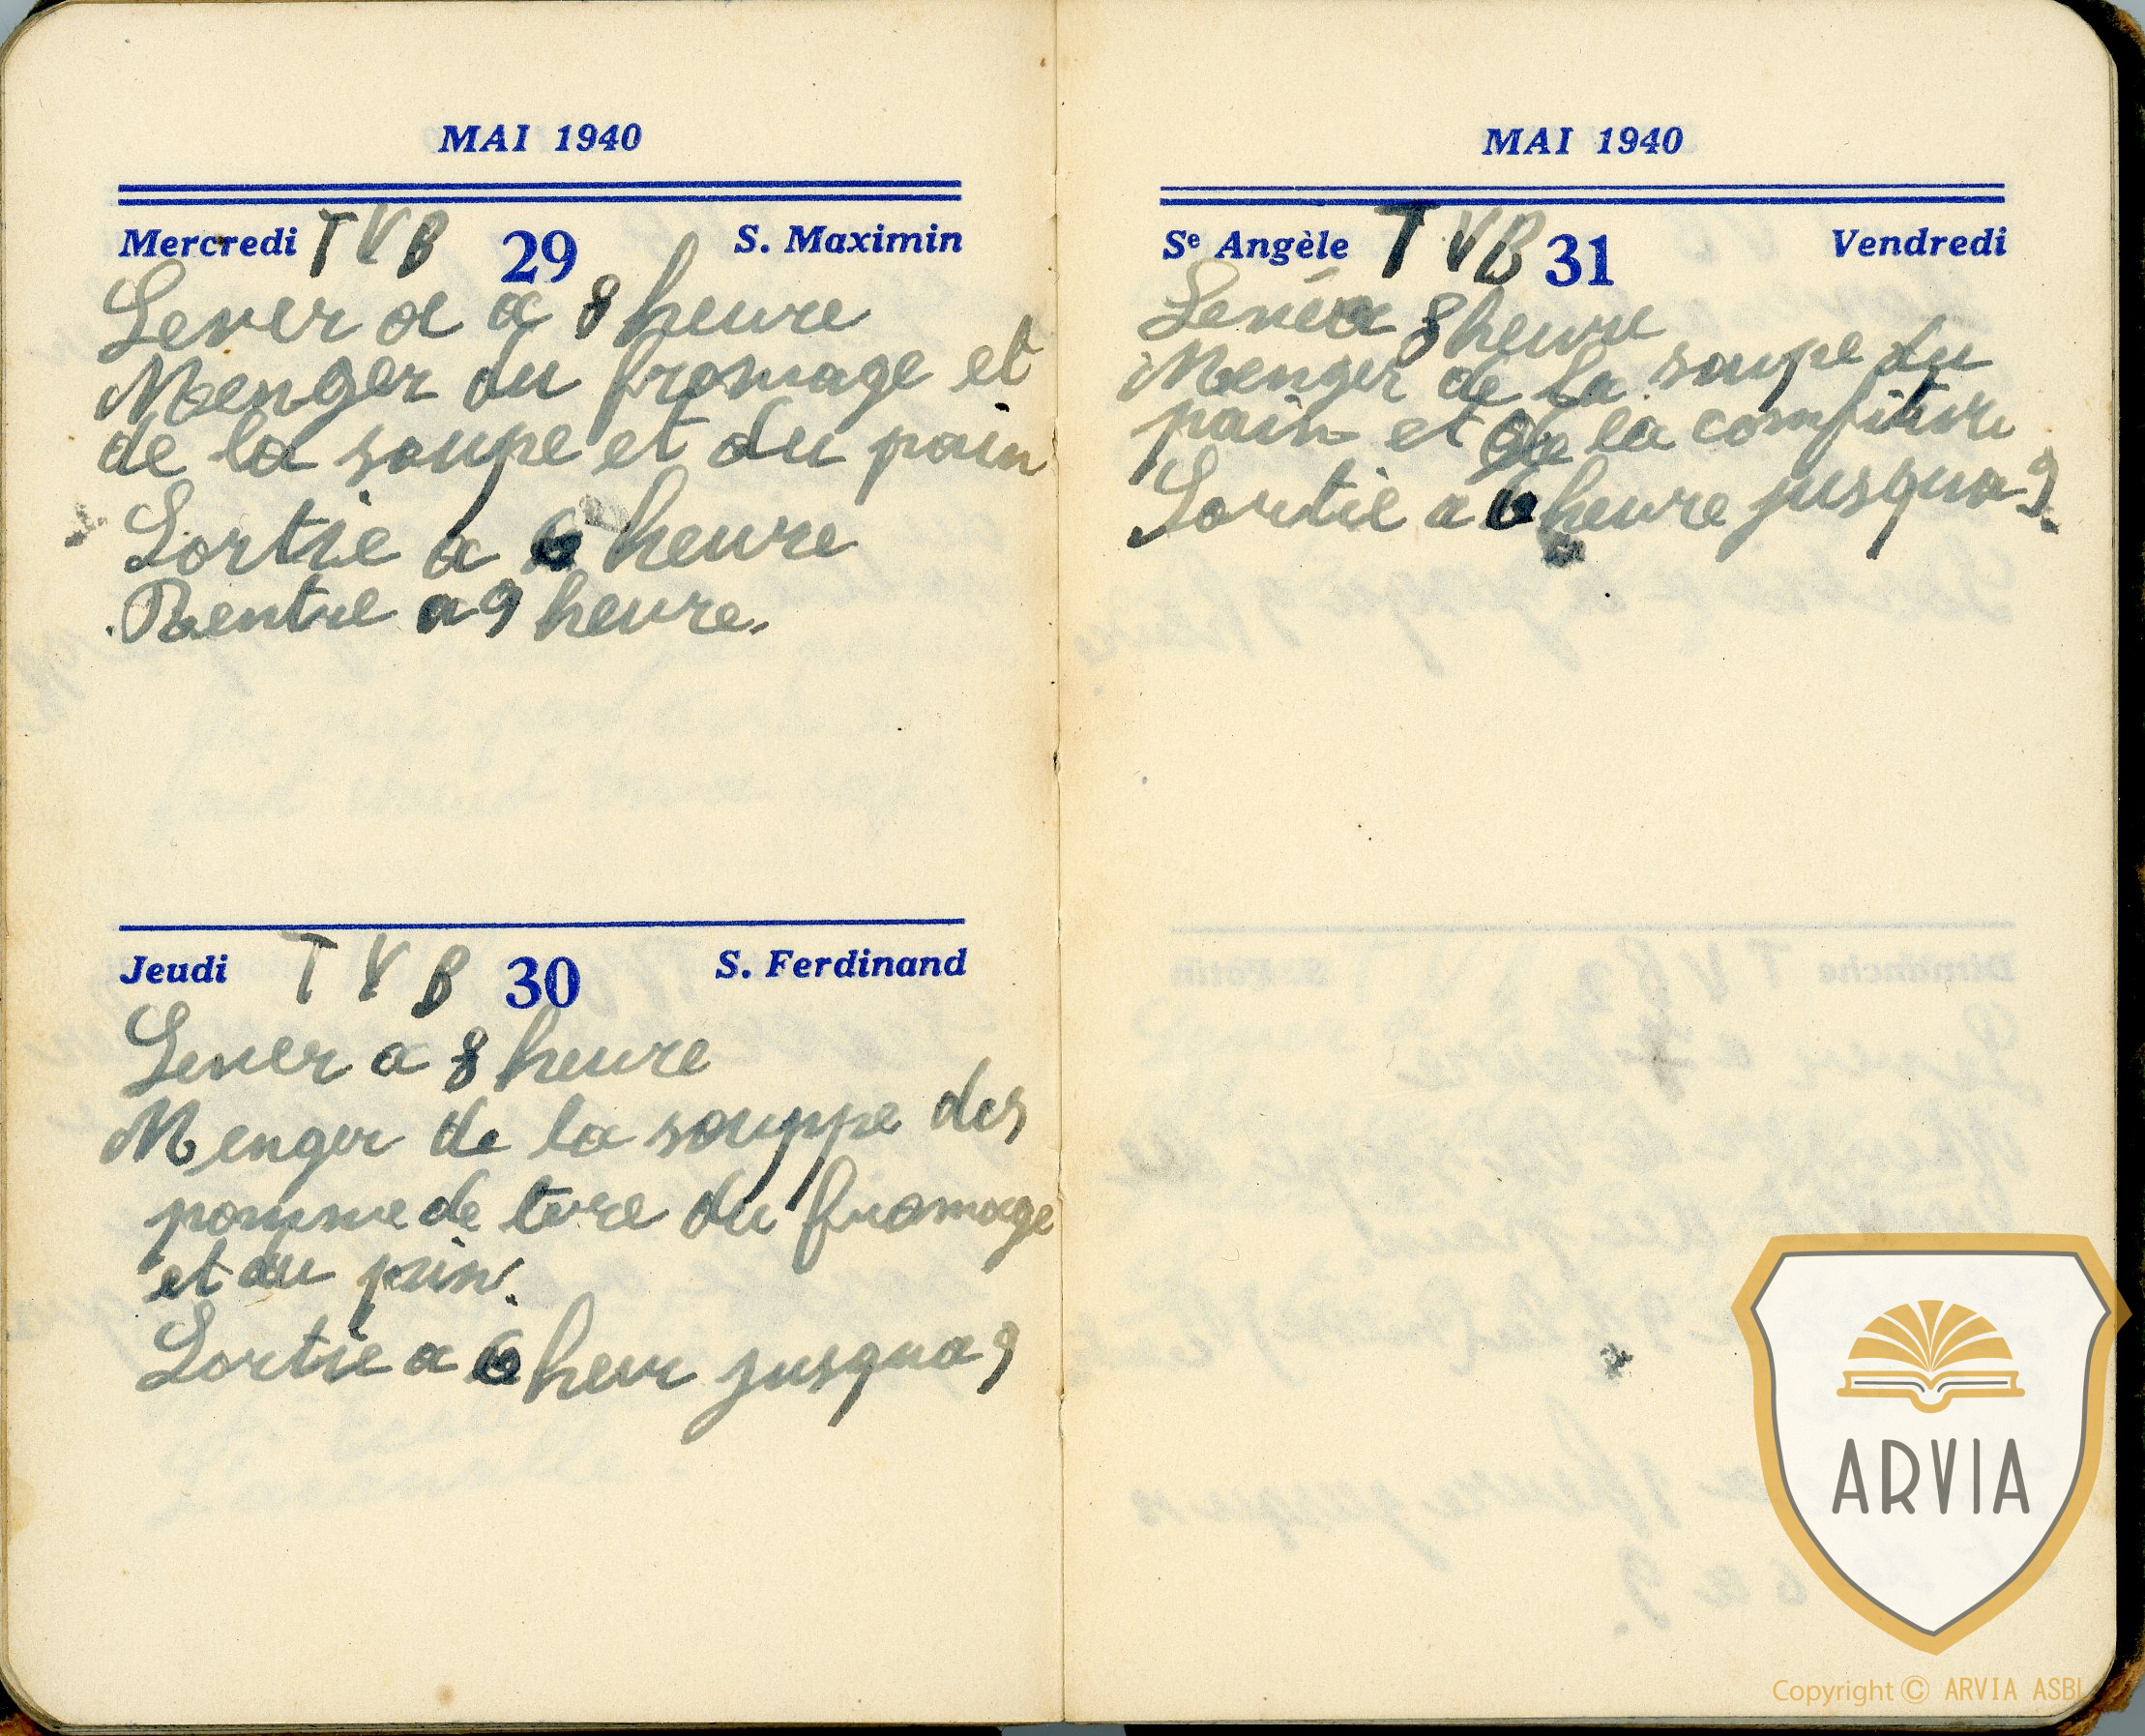 MAI 1940
Mercredi TVB 29 S. Maximin
Lever a a 8 heure
Menger du fromage et
de la soupe et du pain
Sortie a 6 heure
Rentre a 9 heure.
Jeudi TVB 30 S. Ferdinand
Lever a 8 heure
Menger de la souppe des
pomme de tere du fromage
et du pain.
Sortie a 6 heur jusqua 9
MAI 1940
Se Angèle TVB 31 Vendredi
Levé a 8 heure
Menger de la soupe du
pain et de la comfiture
Sortie a 6 heure jusqua 9.
ARVIA
Copyright © ARVIA ASBL